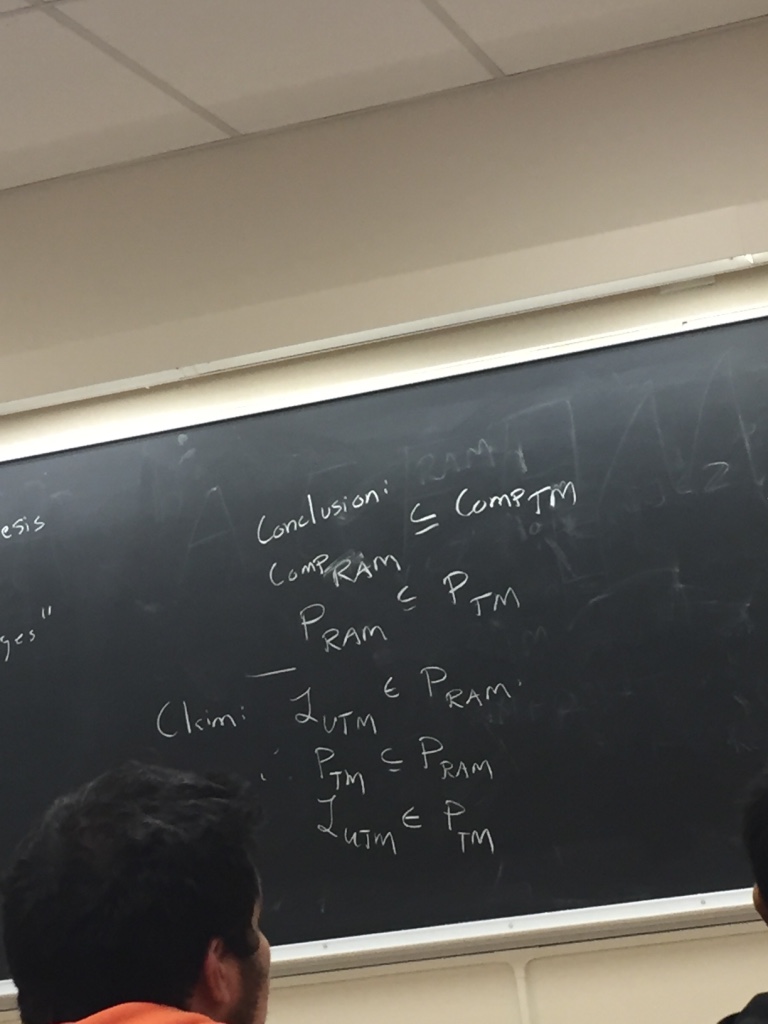 esis
ges"
Conclusion:
Comp_RAM ⊆ Comp_TM
P_RAM ⊆ P_TM
—
Claim: L_UTM ∈ P_RAM.
∴ P_TM ⊆ P_RAM
L_UTM ∈ P_TM